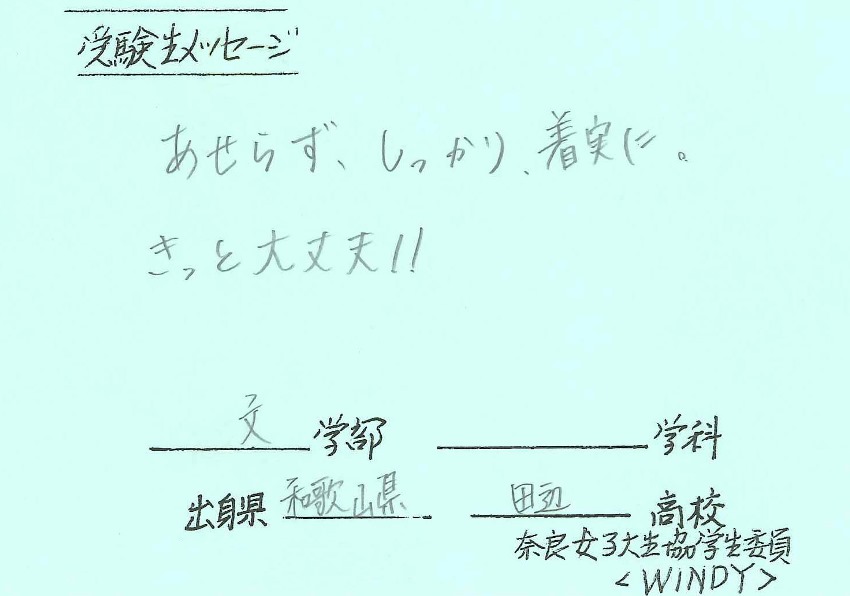 受験生メッセージ
あせらず、しっかり、着実に。
きっと大丈夫!!
文学部 学科
出身県 和歌山県 田辺 高校
奈良女子大生協学生委員
<WINDY>